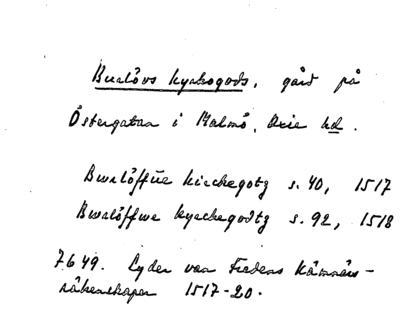 Burlövs kyrkogods, gård på
Östergatan i Malmö, Oxie hd.
Bwrlöffue kirckegotz s. 40, 1517
Bwrlöffwe kyrckegodtz s. 92, 1518
7649. Lyder van Fredens Kämnärs-
räkenskaper 1517-20.